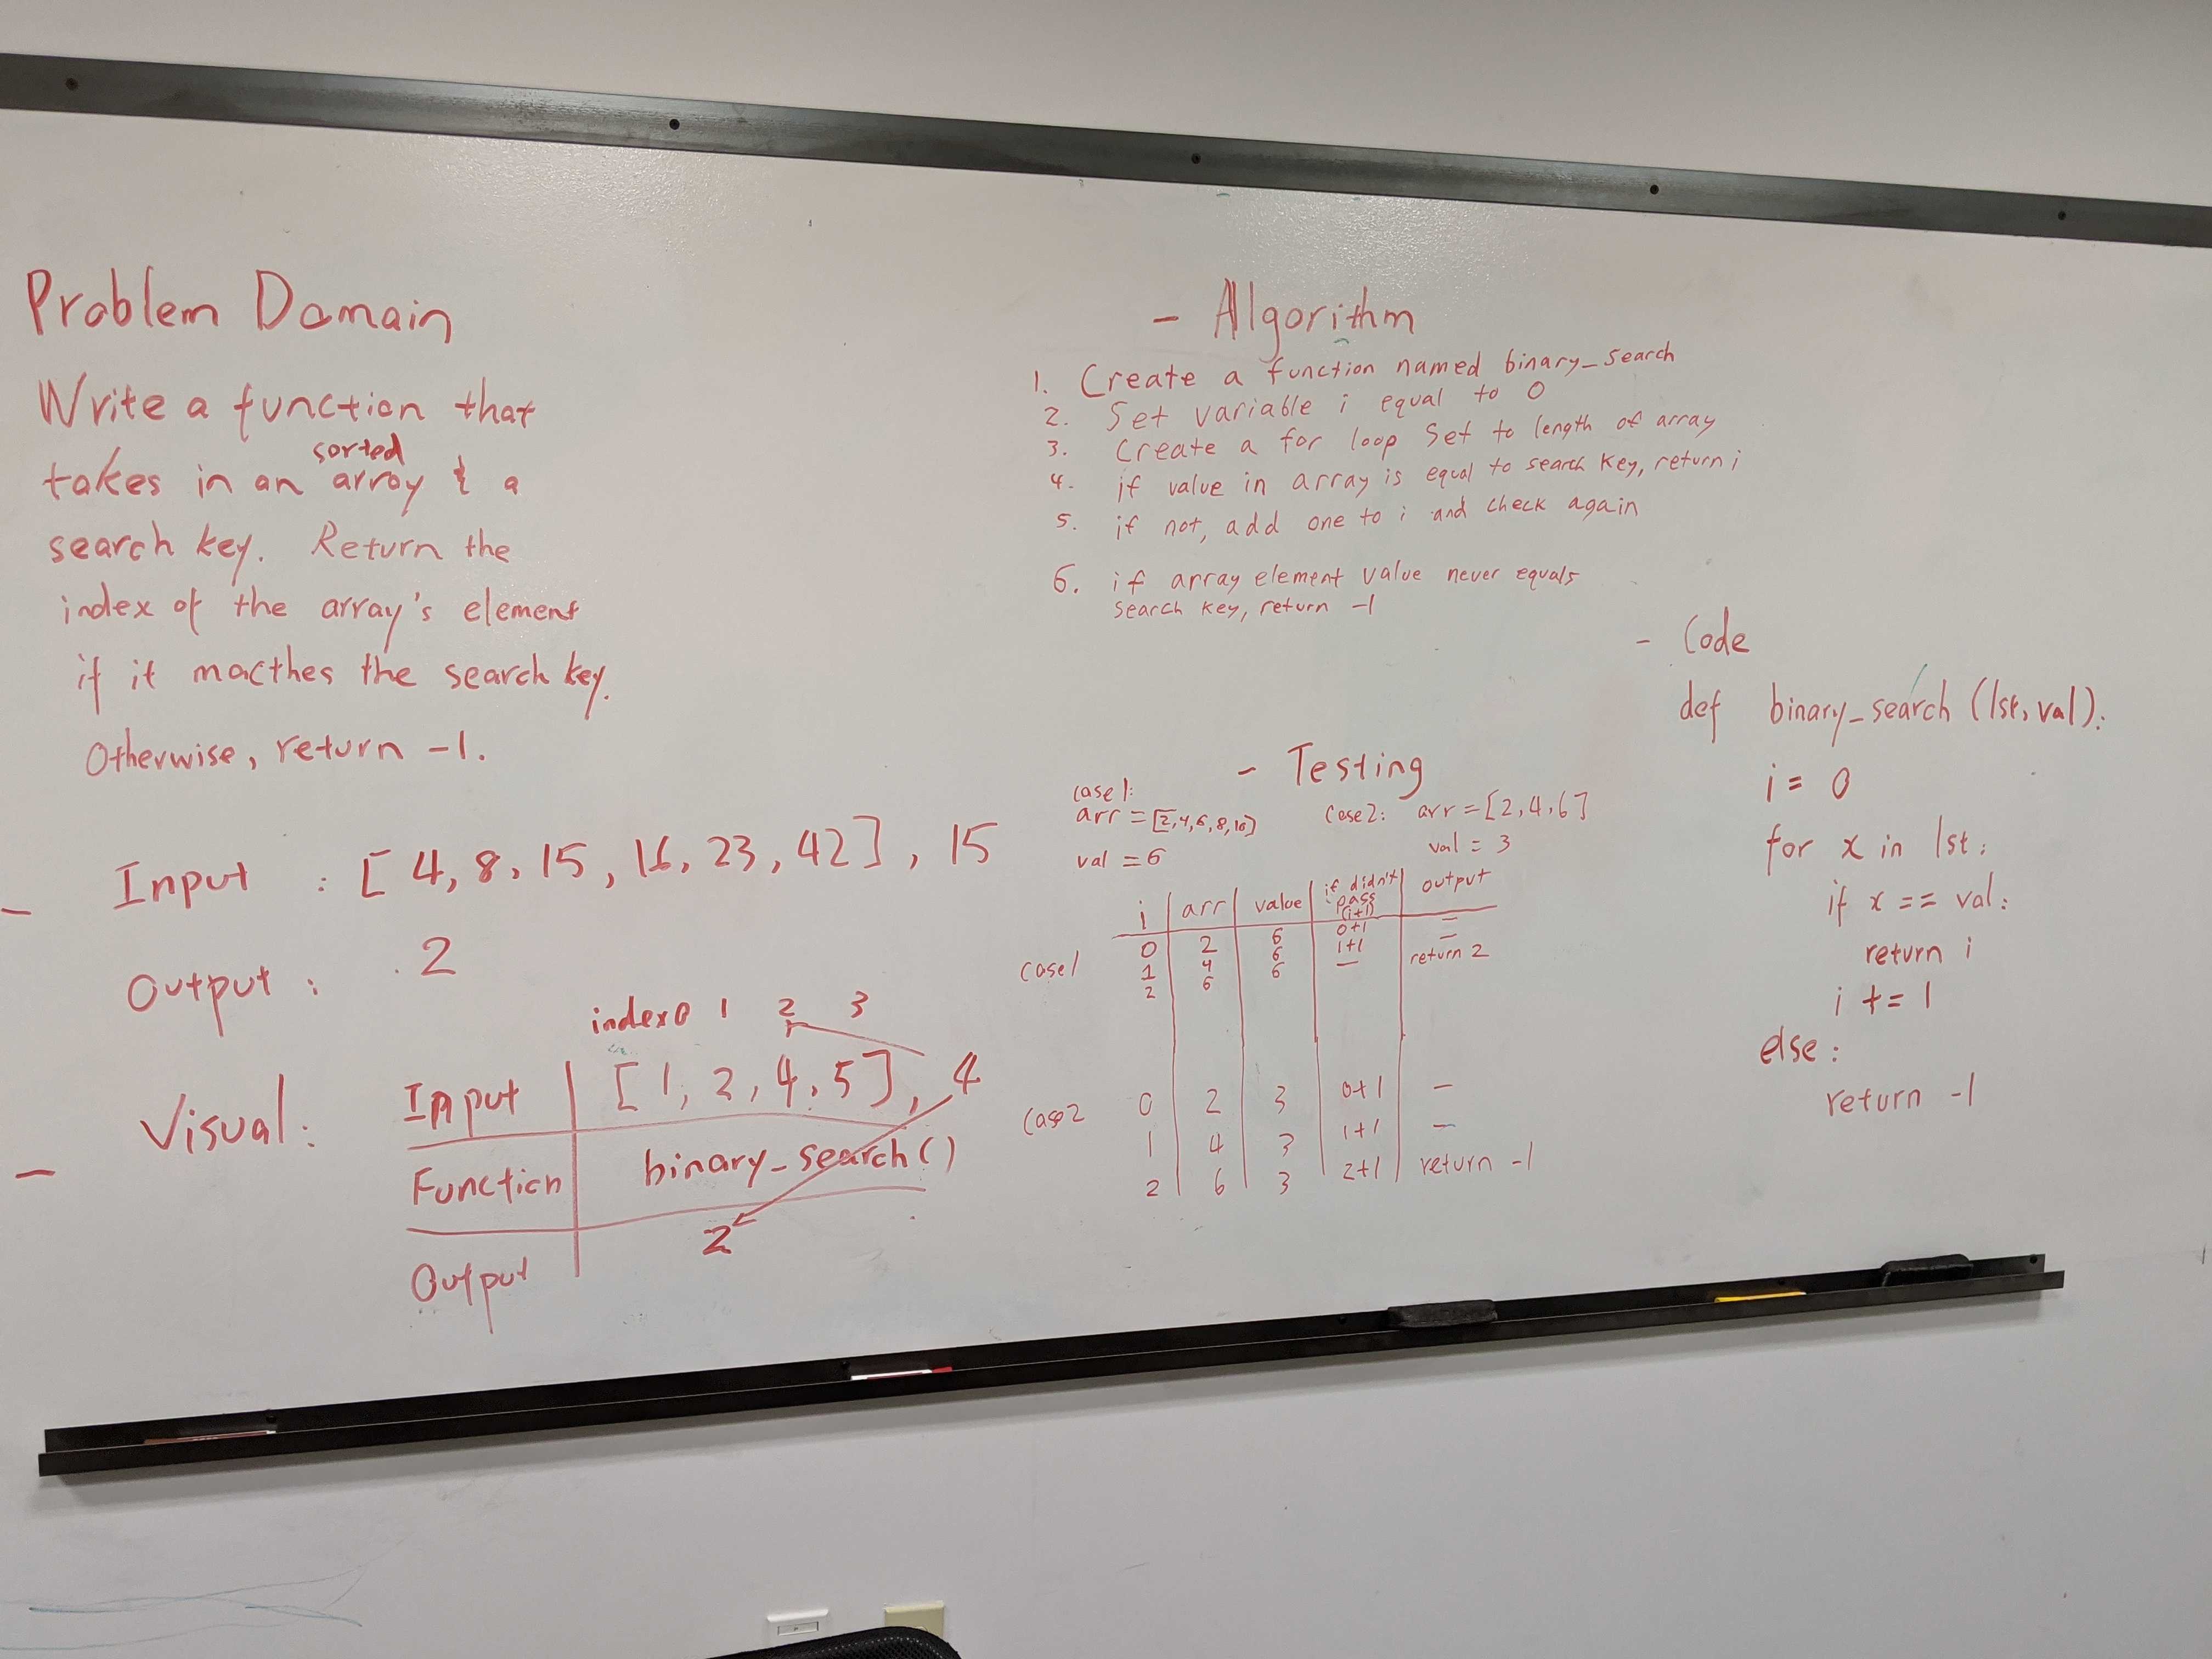 Problem Domain
Write a function that
sorted
takes in an array & a
search key. Return the
index of the array's element
if it macthes the search key.
Otherwise, return -1.
- Input : [ 4, 8, 15, 16, 23, 42 ] , 15
Output : 2
index 0 1 2 3
- Visual: Input [ 1, 2, 4, 5 ] , 4
Function binary_search()
Output 2
- Algorithm
1. Create a function named binary_search
2. Set variable i equal to 0
3. Create a for loop Set to length of array
4. if value in array is equal to search key, return i
5. if not, add one to i and check again
6. if array element value never equals
search key, return -1
- Testing
case 1:
arr = [2,4,6,8,10]
val = 6
Case2: arr = [2,4,6]
val = 3
i arr value if didn't pass (i+1) output
case 1
0 2 6 0+1 -
1 4 6 1+1 -
2 6 6 - return 2
Case2
0 2 3 0+1 -
1 4 3 1+1 -
2 6 3 2+1 return -1
- Code
def binary_search (lst, val):
i = 0
for x in lst:
if x == val:
return i
i += 1
else:
return -1